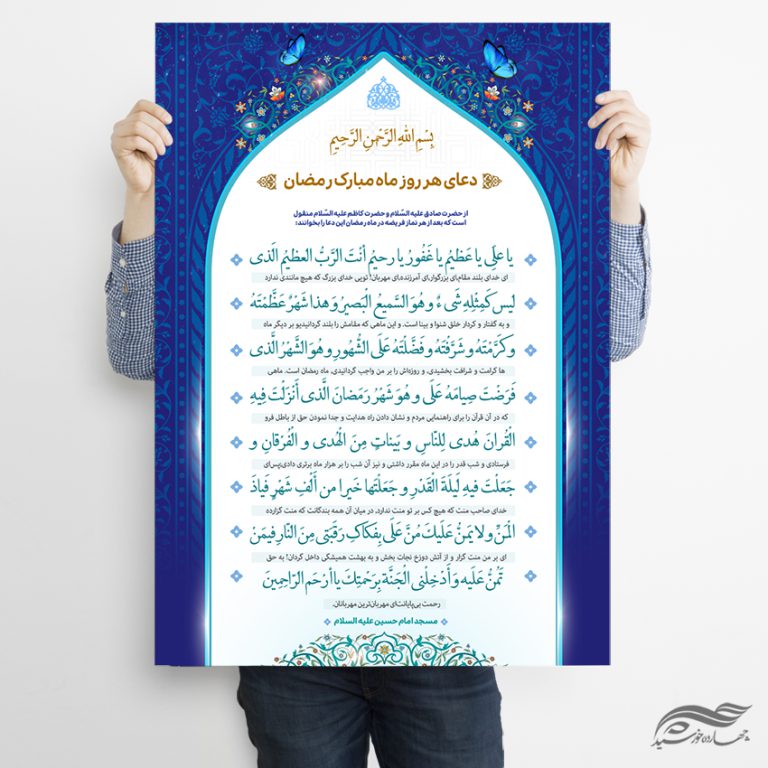 بِسْمِ اللهِ الرَّحْمٰنِ الرَّحِيمِ
دعای هر روز ماه مبارک رمضان
از حضرت صادق علیه السّلام و حضرت کاظم علیه السّلام منقول
است که بعد از هر نماز فریضه در ماه رمضان این دعا را بخوانند:
یا عَلِیُّ یا عَظیمُ یا غَفُورُ یا رحیمُ أنْتَ الرَّبُّ العظیمُ الَّذی
ای خدای بلند مقام،ای بزرگوار،ای آمرزنده،ای مهربان! تویی خدای بزرگ که هیچ مانندی ندارد
لَیسَ کَمِثْلِهِ شَیءٌ وَ هُوَ السَّمیعُ الْبَصیرُ وَ هذا شَهْرٌ عَظَّمْتَهُ
و به گفتار و کردار خلق شنوا و بینا است. و این ماهی که مقامش را بلند گردانیدیو بر دیگر ماه
وَ کَرَّمْتَهُ وَ شَرَّفْتَهُ وَ فَضَّلْتَهُ عَلَی الشُّهُورِ وَ هُوَ الشَّهْرُ الَّذی
ها کرامت و شرافت بخشیدی، و روزه‌اش را بر من واجب گردانیدی، ماه رمضان است. ماهی
فَرَضْتَ صِیامَهُ عَلَی وَ هُوَ شَهْرُ رَمَضانَ الَّذی أَنْزَلْتَ فِیهِ
که در آن قرآن را برای راهنمایی مردم و نشان دادن راه هدایت و جدا نمودن حق از باطل فرو
الْقُرانَ هُدی لِلنَّاسِ وَ بَیناتٍ مِنَ الْهُدی وَ الْفُرْقانِ وَ
فرستادی و شب قدر را در این ماه مقرر داشتی و نیز آن شب را بر هزار ماه برتری دادی،پس‌ای
جَعَلْتَ فیهِ لَیلَةَ الْقَدْرِ وَ جَعَلْتَها خَیرا مِنْ أَلْفِ شَهْرٍ فَیاذَ
خدای صاحب منت که هیچ کس بر تو منت ندارد، در میان آن همه بندگانت که منت گزارده
الْمَنِّ وَ لا یمَنُّ عَلَیكَ مُنَّ عَلَی بِفَکَاكِ رَقَبَتی مِنَ النّارِ فیمَنْ
ای بر من منت گزار و از آتش دوزخ نجات بخش و به بهشت همیشگی داخل گردان! به حق
تَمُنُّ عَلَیه وَ أَدْخِلْنی الْجَنَّةَ بِرَحْمَتِكَ یا أرْحَمَ الرّاحِمینَ
رحمت بی‌پایانت‌ای مهربان‌ترین مهربانان.
مسجد امام حسین علیه السلام
چهارده خورشید